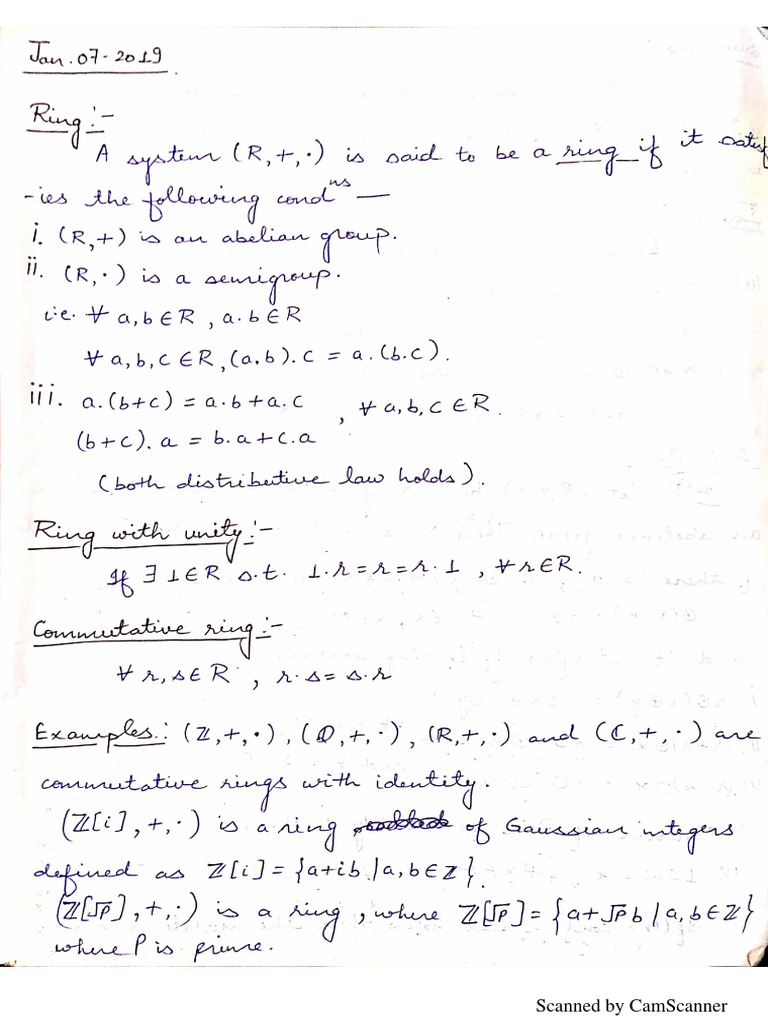 Jan. 07-2019.
Ring:-
A system (R,+,·) is said to be a ring if it satisf
-ies the following condⁿˢ —
i. (R,+) is an abelian group.
ii. (R,·) is a semigroup.
i.e. ∀ a,b∈R, a·b∈R
∀ a,b,c∈R, (a.b).c = a.(b.c).
iii. a.(b+c) = a·b+a.c , ∀ a,b,c∈R.
(b+c).a = b.a+c.a
(both distributive law holds).
Ring with unity:-
If ∃ 1∈R s.t. 1.r=r=r.1, ∀r∈R.
Commutative ring:-
∀ r,s∈R, r·s=s.r
Examples: (ℤ,+,·), (ℚ,+,·), (R,+,·) and (ℂ,+,·) are
commutative rings with identity.
(ℤ[i],+,·) is a ring of Gaussian integers
defined as ℤ[i]={a+ib/a,b∈ℤ}.
(ℤ[√p],+,·) is a ring, where ℤ[√p]={a+√p b/a,b∈ℤ}
where P is prime.
Scanned by CamScanner